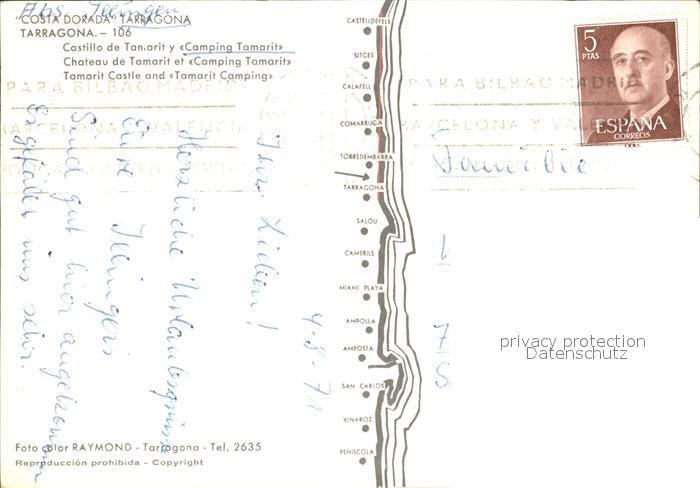 Abs. Illingen
"COSTA DORADA" TARRAGONA
TARRAGONA. – 106
Castillo de Tamarit y «Camping Tamarit»
Chateau de Tamarit et «Camping Tamarit»
Tamarit Castle and «Tamarit Camping»
PARA BILBAO MADRID
BARCELONA Y VALENCIA
PARA BILBAO MADRID
BARCELONA Y VALENCIA
5
PTAS
ESPAÑA
CORREOS
CASTELLDEFELS
SITGES
CALAFELL
COMARRUGA
TORREDEMBARRA
TARRAGONA
SALOU
CAMBRILS
MIAMI PLAYA
AMPOLLA
AMPOSTA
SAN CARLOS
VINAROZ
PEÑISCOLA
4.8.71
Ihr Lieben!
Herzliche Urlaubsgrüsse
Eure Illingers
Sind gut hier angekommen
Es gefällt uns sehr.
Familie
privacy protection
Datenschutz
Foto color RAYMOND - Tarragona - Tel. 2635
Reproducción prohibida - Copyright